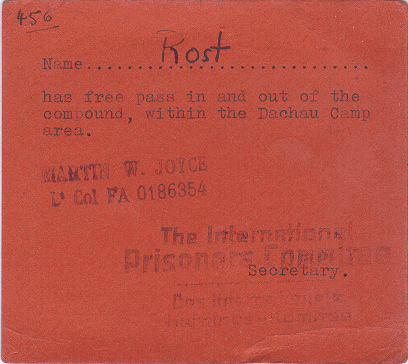 456
Name Rost
has free pass in and out of the
compound, within the Dachau Camp
area.
MARTIN W. JOYCE
Lt Col FA 0186354
The International
Prisoners Committee
Secretary.
Das Internationale